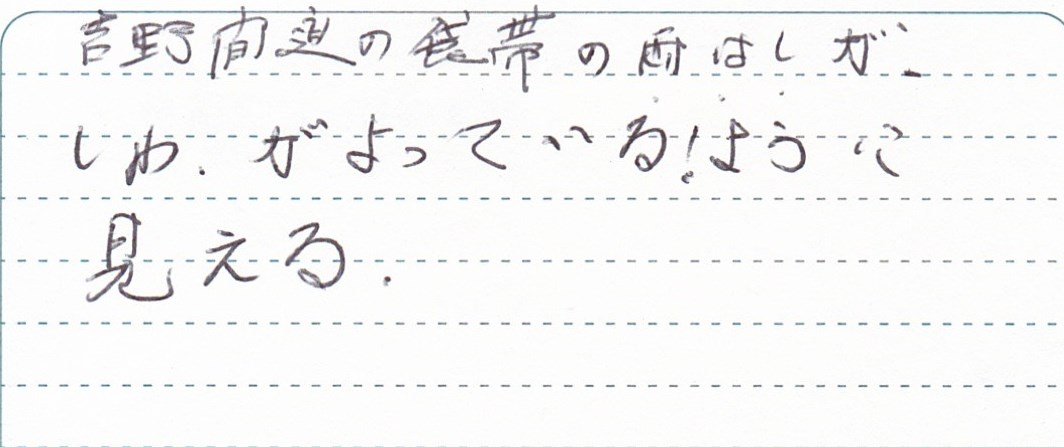 吉野間道の袋帯の両はしが、
しわ.がよっている!ように
見える.